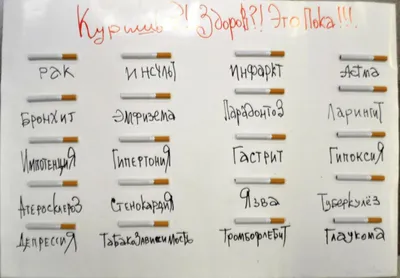 Куришь?! Здоров?! Это Пока!!!
Рак Инсульт Инфаркт Астма
Бронхит Эмфизема Парадонтоз Ларингит
Импотенция Гипертония Гастрит Гипоксия
Атеросклероз Стенокардия Язва Туберкулёз
Депрессия Табакозависимость Тромбофлебит Глаукома